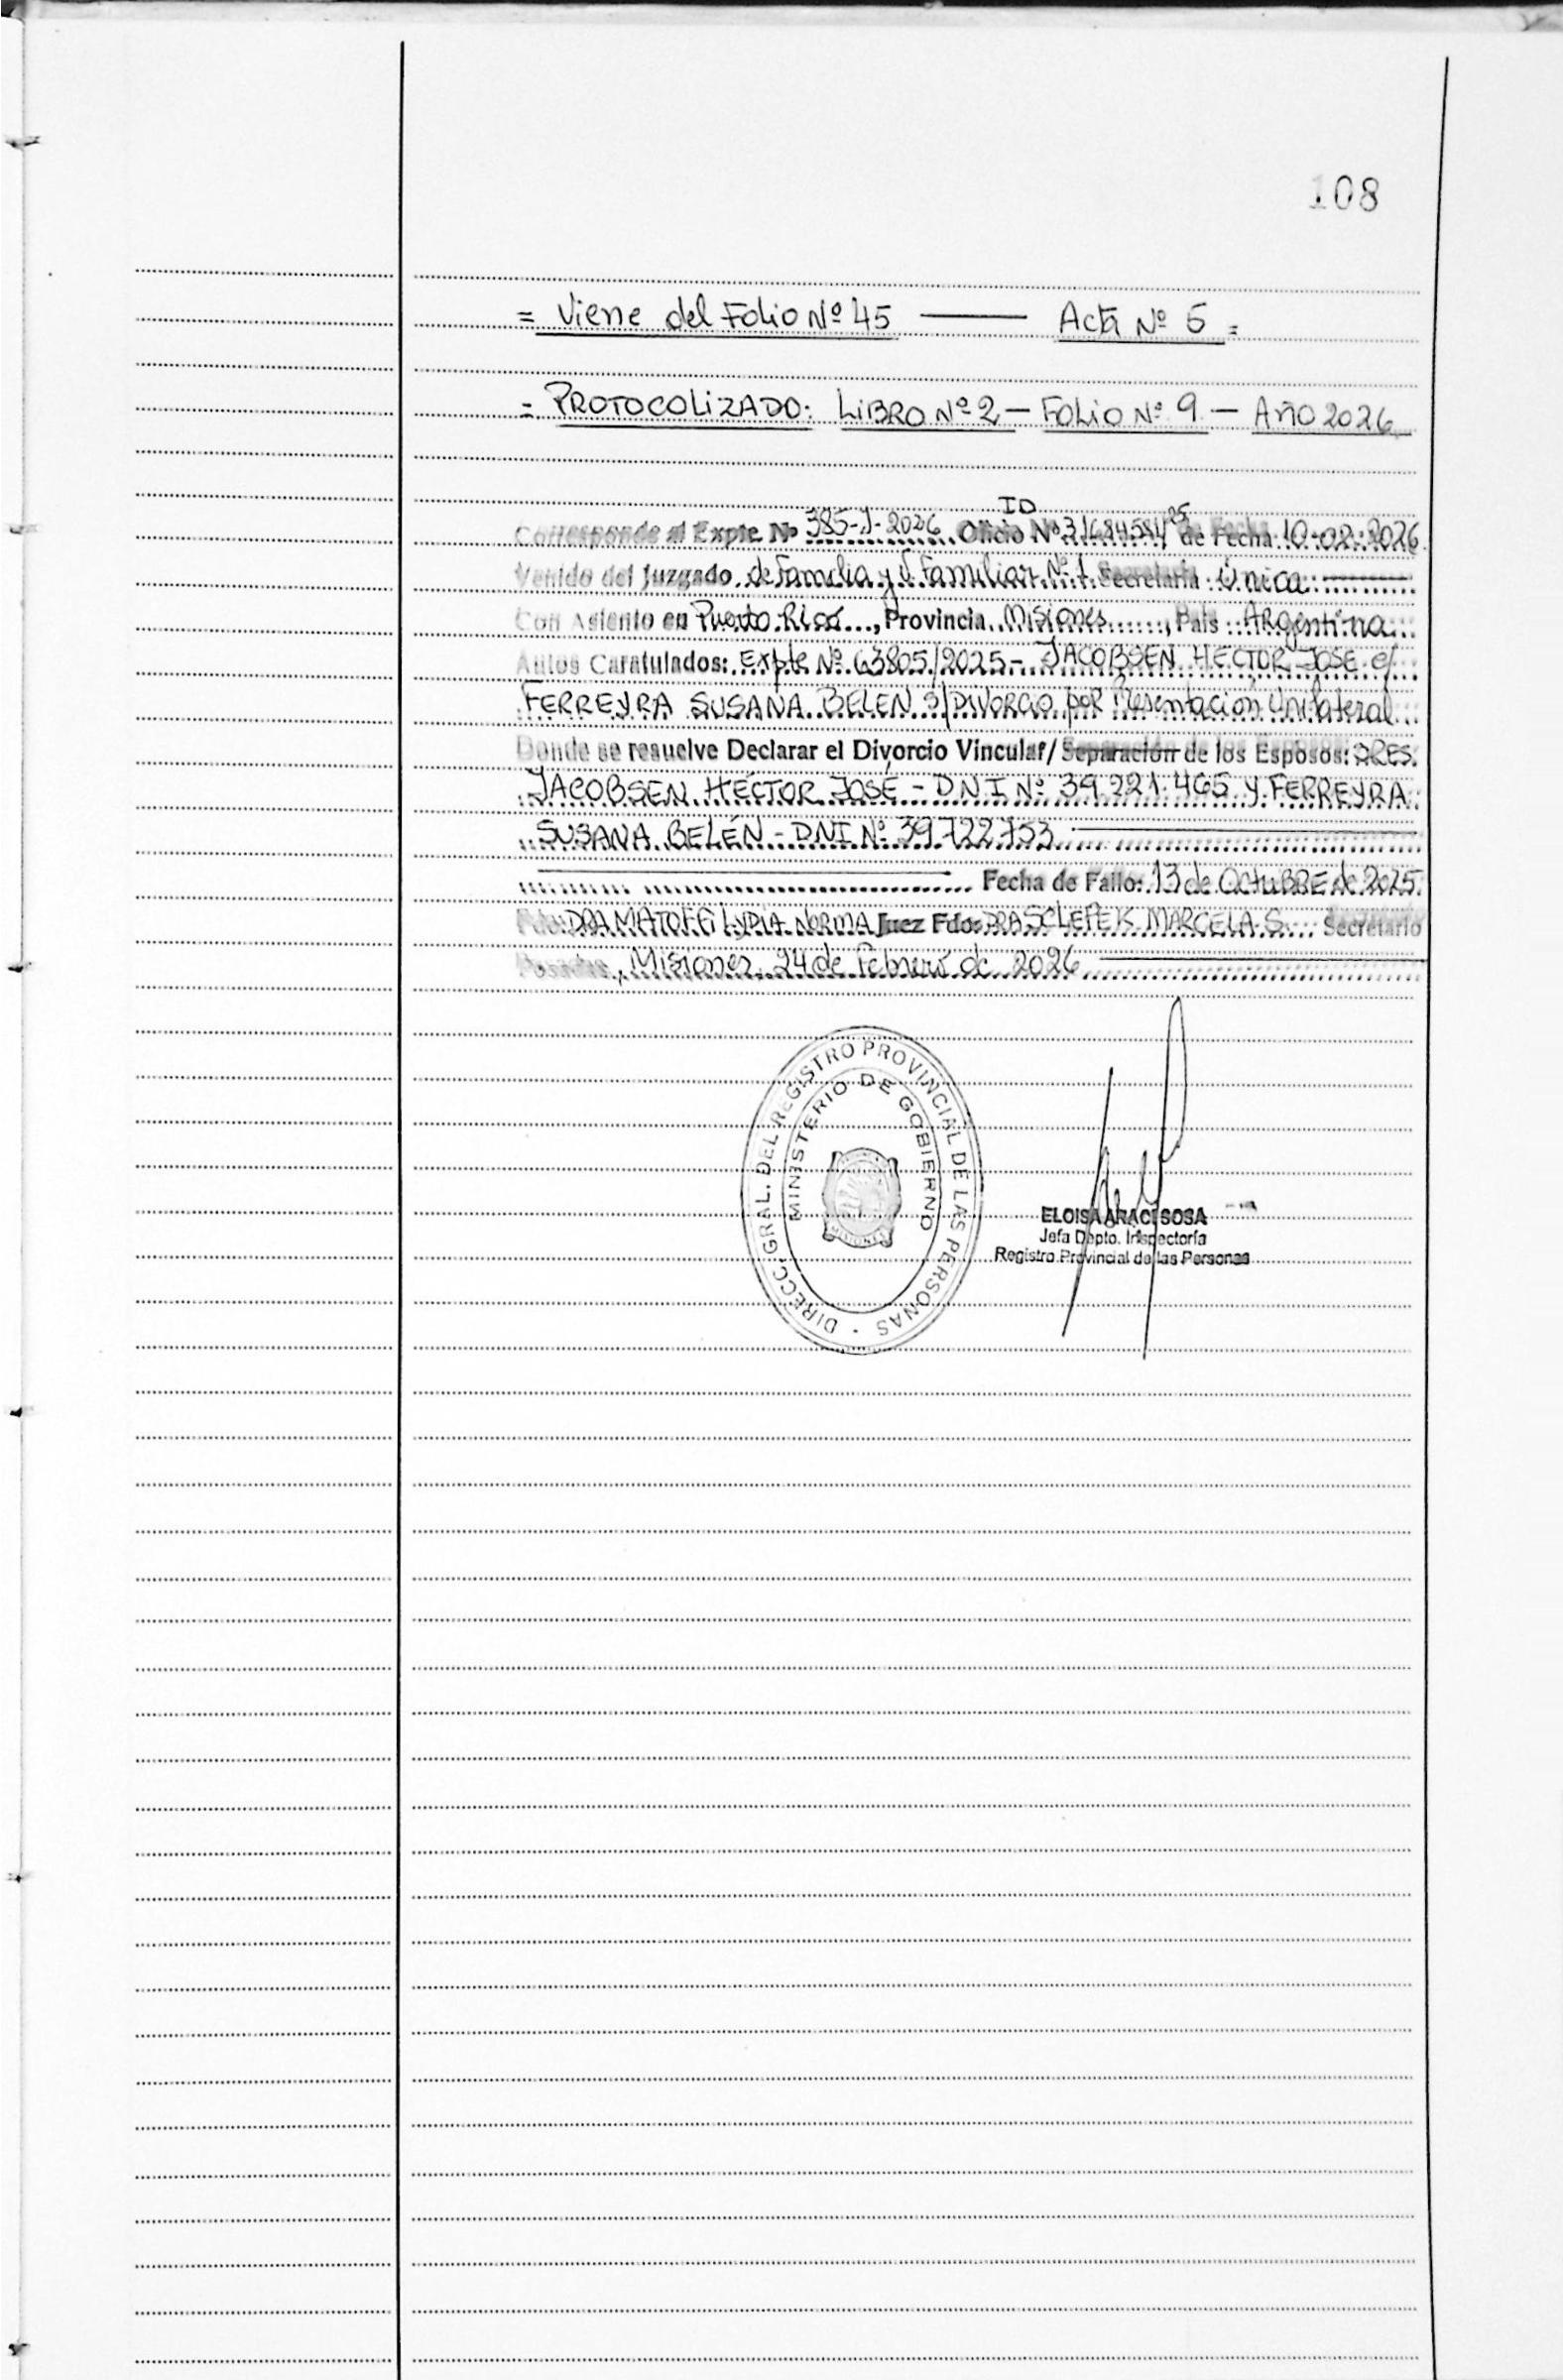 108
= Viene del Folio Nº 45 —— Acta Nº 5 =
= PROTOCOLIZADO: LIBRO Nº 2 — FOLIO Nº 9 — AÑO 2026
ID
Corresponde al Expte. Nº 385-J-2026. Oficio Nº de Fecha 10-02-2026
Venido del Juzgado de Familia y V. Familiar Nº 1 Secretaría Única
Con Asiento en Puerto Rico, Provincia Misiones, País Argentina
Autos Caratulados: Expte Nº 63805/2025 - JACOBSEN HECTOR JOSE c/
FERREYRA SUSANA BELEN S/Divorcio por Presentación Unilateral
Donde se resuelve Declarar el Divorcio Vincular/ Separación de los Esposos: SRES.
JACOBSEN HÉCTOR JOSÉ - DNI Nº 39.221.465 Y FERREYRA
SUSANA BELÉN - DNI Nº 39.722.753
Fecha de Fallo: 13 de OCTUBRE de 2025.
Fdo: DRA LYDIA NORMA Juez Fdo: DRA MARCELA S. Secretario
Posadas, Misiones, 24 de Febrero de 2026
DIRECC. GRAL. DEL REGISTRO PROVINCIAL DE LAS PERSONAS
MINISTERIO DE GOBIERNO
MISIONES
ELOISA ARACI SOSA
Jefa Depto. Inspectoría
Registro Provincial de las Personas